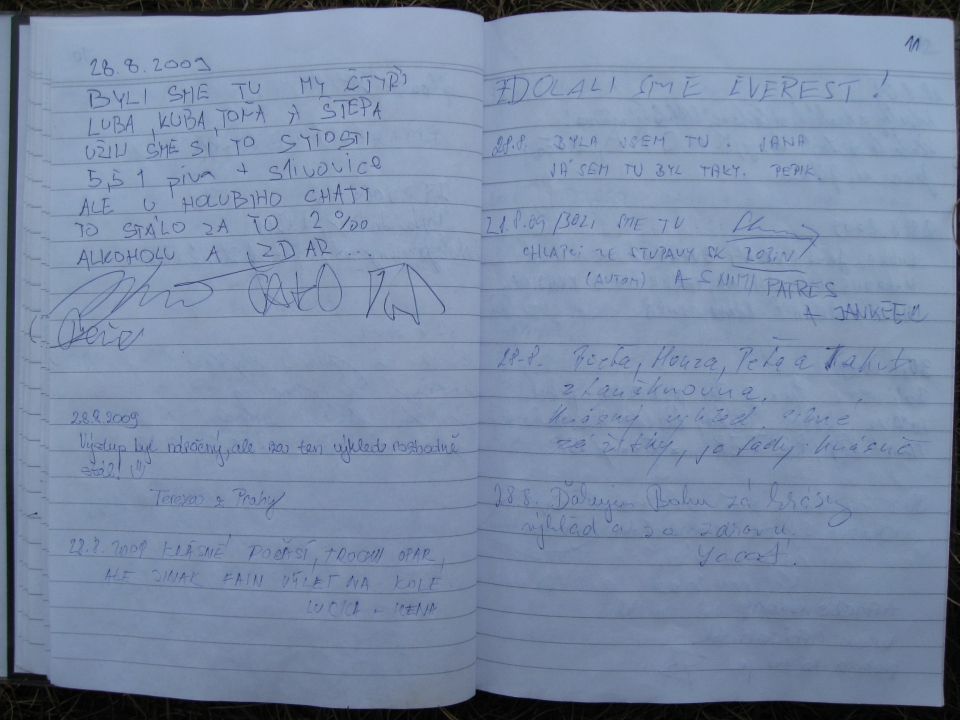 28.8.2009
BYLI SME TU MY ČTYŘI
LUBA, KUBA, TOŇA A ŠTĚPA
UŽILI SME SI TO SYTOSTI
5,51 piva + slivovice
ALE U HOLUBIHO CHATY
TO STÁLO ZA TO 2 ‰
ALKOHOLU A ZDAR...
28.8.2009
Výstup byl náročný, ale za ten výhled rozhodně
stál!
Tereza z Prahy
KRÁSNÉ POČASÍ, TROCHU OPAR,
ALE JINAK FAIN VÝLET NA KOLE
LUCKA +
11
ZDOLALI SME EVEREST!
28.8. BYLA JSEM TU. JANA
JÁ SEM TU BYL TAKY. PEPIK.
SME TU
CHLAPCI ZE STUPAVY SK
(AUTOM) A S NIMI PATRES
A
28.8. Honza, Péťa a
Krásný výhled, silné
zážitky, je tady krásně
28.8. Ďakujem Bohu za krásny
výhľad a za zdravie.